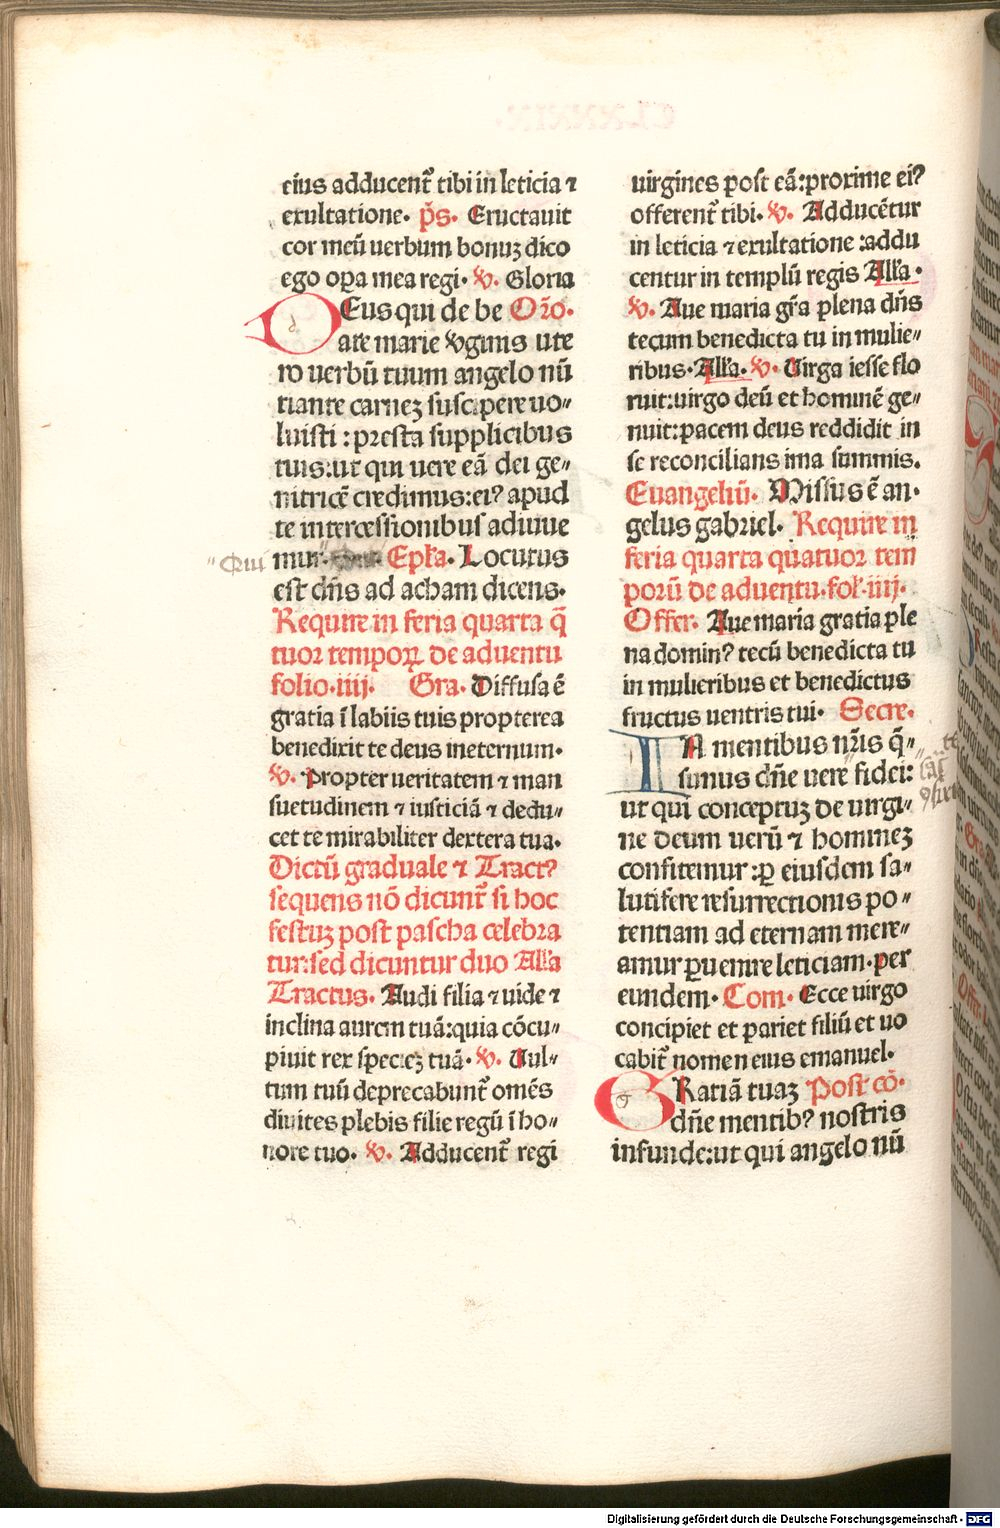 eius adducent᷑ tibi in leticia ⁊
exultatione. p̄s. Eructauit
cor meū uerbum bonuꝫ dico
ego oꝑa mea regi. ꝟ. Gloria
DEus qui de be Or̄o.
ate marie ꝟginis ute
ro uerbū tuum angelo nū
tiante carneꝫ suscipere uo⸗
luisti : presta supplicibus
tuis:ut qui uere eā dei ge⸗
nitricē credimus:eiꝰ apud
te intercessionibus adiuue
mur. Epl̄a. Locutus
est dn̄s ad acham dicens.
Require in feria quarta q̄
tuor temporꝝ de aduentu
folio.iiij. Gra. Diffusa ē
gratia ī labiis tuis propterea
benedixit te deus ineternum.
ꝟ. Propter ueritatem ⁊ man
suetudinem ⁊ iusticiā ⁊ dedu⸗
cet te mirabiliter dextera tua.
Dictū graduale ⁊ Tractꝰ
sequens nō dicunt᷑ si hoc
festuꝫ post pascha celebra
tur:sed dicuntur duo All̄a
Tractus. Audi filia ⁊ uide ⁊
inclina aurem tuā:quia cōcu⸗
piuit rex specieꝫ tuā. ꝟ. Uul⸗
tum tuū deprecabunt᷑ omēs
diuites plebis filie regū ī ho⸗
nore tuo. ꝟ. Adducent᷑ regi
uirgines post eā:proxime eiꝰ
offerent᷑ tibi. ꝟ. Adducētur
in leticia ⁊ exultatione :addu
centur in templū regis All̄a.
ꝟ. Aue maria gr̄a plena dn̄s
tecum benedicta tu in mulie⸗
ribus. All̄a. ꝟ. Uirga iesse flo
ruit:uirgo deū et hominē ge⸗
nuit:pacem deus reddidit in
se reconcilians ima summis.
Euangeliū. Missus ē an⸗
gelus gabriel. Require in
feria quarta quatuor tem
porū de aduentu.fol̄.iiij.
Offer. Aue maria gratia ple
na dominꝰ tecū benedicta tu
in mulieribus et benedictus
fructus uentris tui. Secre.
IN mentibus nr̄is q̄⸗
sumus dn̄e uere fidei:
ut qui conceptuꝫ de uirgi⸗
ne deum uerū ⁊ homineꝫ
confitemur :ꝑ eiusdem sa⸗
lutifere resurrectionis po⸗
tentiam ad eternam mere⸗
amur ꝑuenire leticiam. Per
eundem. Com. Ecce uirgo
concipiet et pariet filiū et uo
cabit᷑ nomen eius emanuel.
GRatiā tuaꝫ Post cō.
dn̄e mentibꝰ nostris
infunde:ut qui angelo nū
Qui
Digitalisierung gefördert durch die Deutsche Forschungsgemeinschaft - DFG